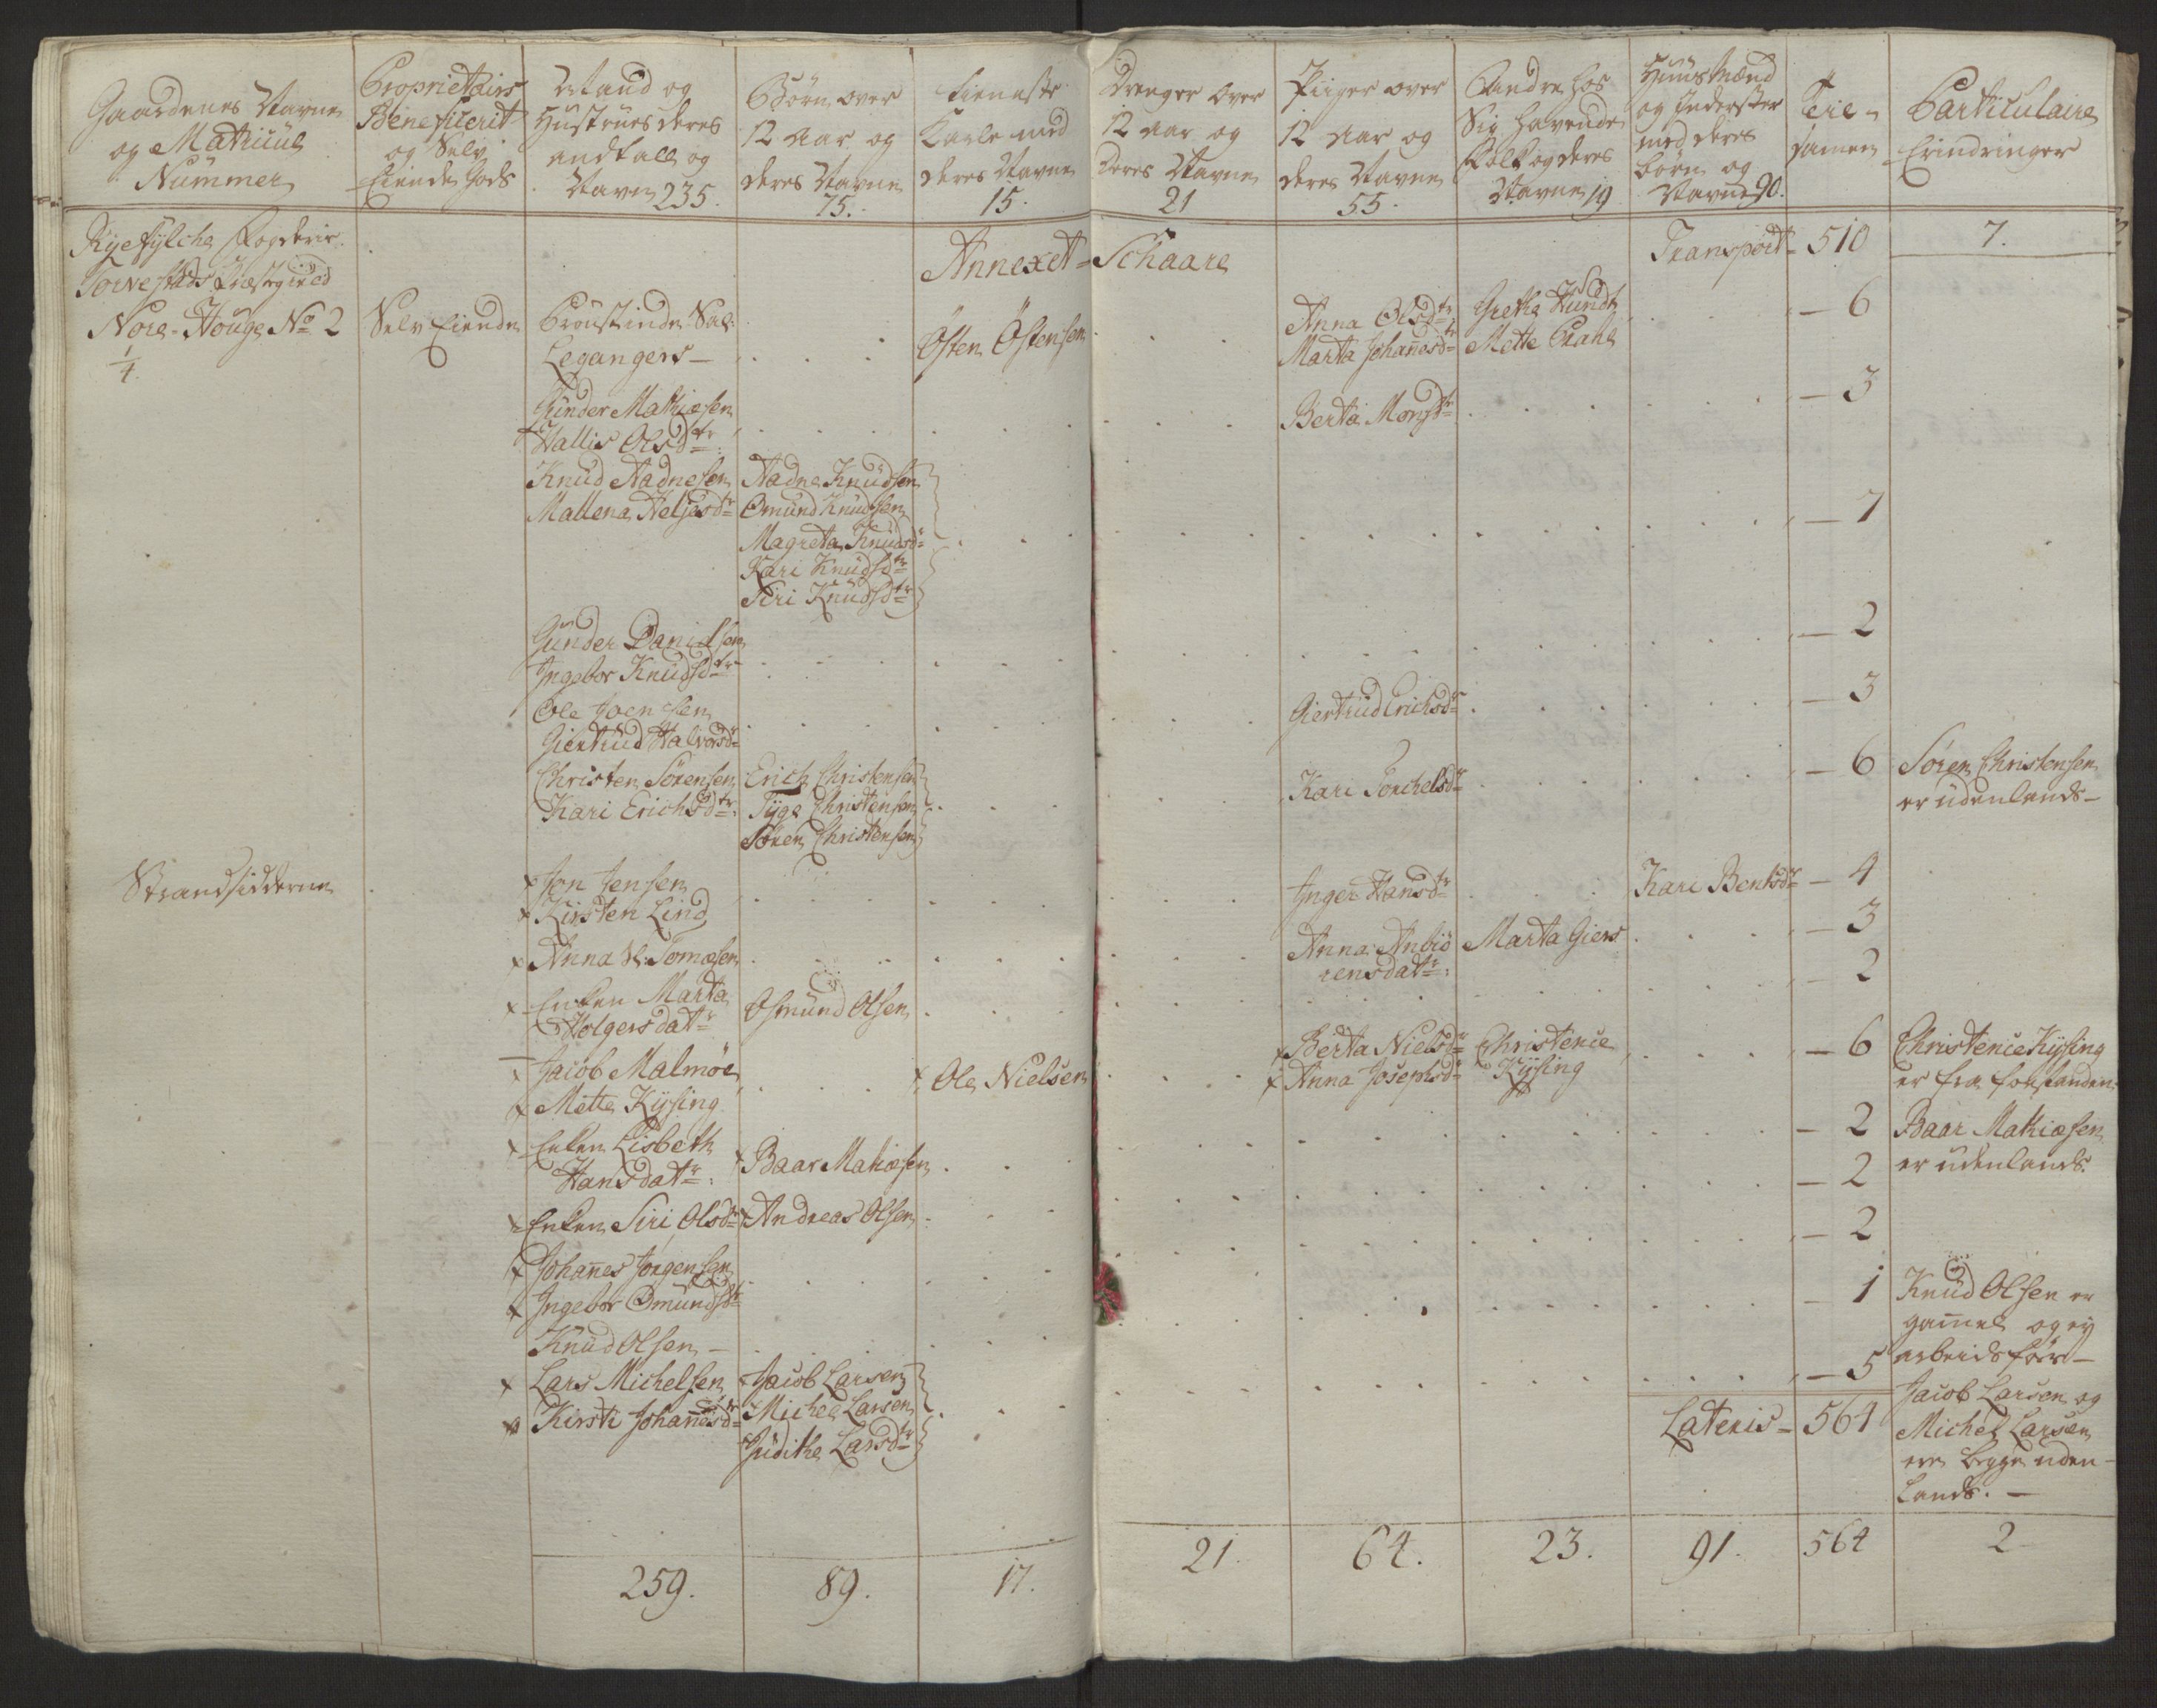 Gaardenes Navne
og Matricul
Nummer
Proprietairs
Beneficerit
og Selv
Eiende Gods
Mand og
Hustrues deres
andtall og
Navn 235.
Börn over
12 Aar og
deres Navne
75.
Tieneste
Karle med
deres Navne
15.
Drenger over
12 Aar og
deres Navne
21
Piiger over
12 Aar og
deres Navne
55.
Andre hos
Sig havende
Folk og deres
Navne 19
Huusmænd
og Inderster
med deres
börn og
Navne 90.
Teie-
samen
Particulaire
Erindringer
Ryefylche Fogderie
Torvestads Præstegield
Annexet- Schaare
Transport- 510
7.
Nore-Houge No 2
1/4
Selv Eiende
Proustinde Sal:
Legangers -
Östen Östensen
Anna Olsdtr
Marta Johanesdtr
Gretha Kundt
Mette Prahl
- 6
Gunder Mathiesen
Wallis Olsdtr
Berta Monsdtr
- 3
Knud Aadnesen
Mallena Neljesdtr
Aadne Knudsen
Omund Knudsen
Magreta Knudsdr
Kari Knudsdtr
Siri Knudsdtr
- 7
Gunder Danielsen
Ingebor Knudsdtr
- 2
Ole Joensen
Giertrud Halvorsdr
Giertrud Erichsdr
- 3
Christen Sörensen
Kari Erichsdtr
Erich Christensen
Tyge Christensen
Sören Christensen
Kari Torchelsdr
- 6
Sören Christensen
er udenlands -
Strandsidderne
Jon Jensen
Kirsten Lind
Inger Hansdtr
Kari Bentsdr
- 4
Anna Sl: Tomæsen
Anna Anbiö
rensdatr:
Marta Giers
- 3
Enken Marta
Holgersdatr
Osmund Olsen
- 2
Jacob Malmöe
Mette Kysing
Ole Nielsen
Berta Nielsdr
Anna Josephsdr
Christence
Kysing
- 6
Christence Kysing
er fra forstanden
Enken Lisbeth
Hansdatr:
Baar Mathiesen
- 2
Baar Mathiesen
er udenlands.
Enken Siri Olsdr
Andreas Olsen
- 2
Johanes Jörgensen
Ingebor Omundsdtr
- 2
Knud Olsen -
- 1
Knud Olsen er
gammel og ey
arbeidsför -
Lars Michelsen
Kirsti Johanesdtr
Jacob Larsen
Michel Larsen
Judithe Larsdtr
- 5
Jacob Larsen og
Michel Larsen
ere begge uden-
Lands. -
Lateris- 564
259.
89.
17.
21.
64.
23.
91.
564
2